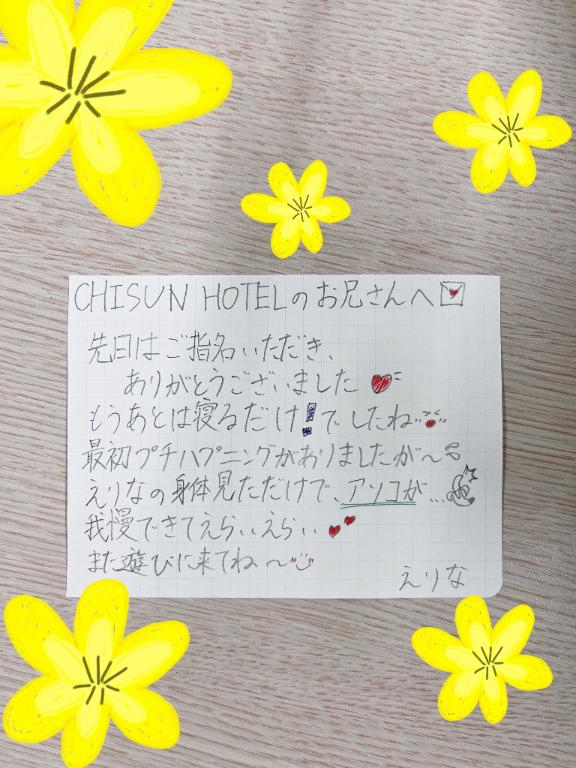 CHISUN HOTELのお兄さんへ
先日はご指名いただき、
ありがとうございました
もうあとは寝るだけ!でしたね
最初プチハプニングがありましたが〜
えりなの身体見ただけで、アソコが…
我慢できてえらいえらい
また遊びに来てね〜
えりな